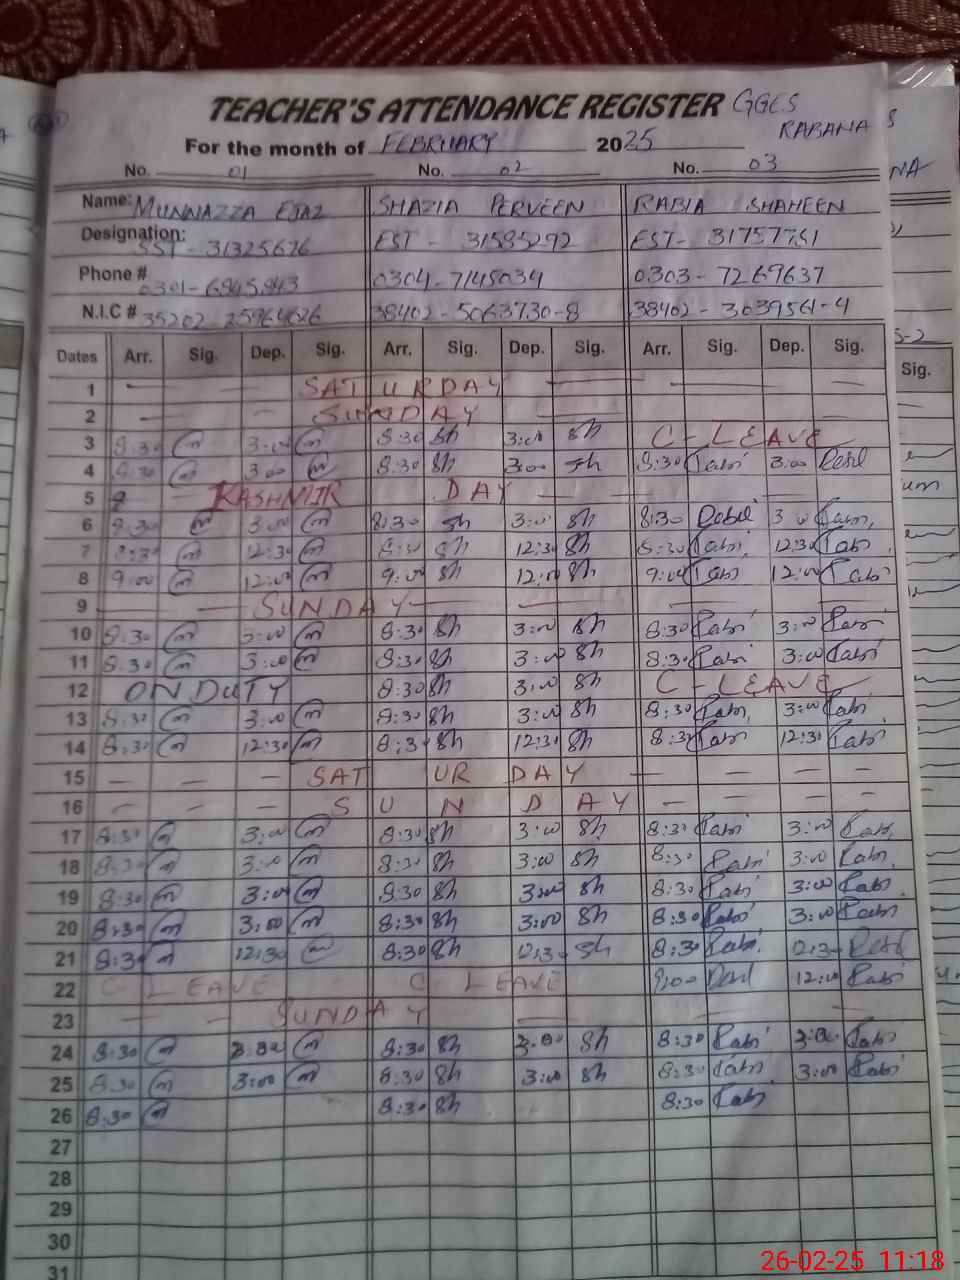 TEACHER'S ATTENDANCE REGISTER GGES
RABANA
For the month of FEBRUARY 2025
No. 01 No. 02 No. 03
Name: MUNNAZZA EJAZ SHAZIA PERVEEN RABIA SHAHEEN
Designation: SST - 31325676 EST - 31585292 EST - 31757751
Phone # 0301-6845843 0304-7145034 0303-7269637
N.I.C # 35202 25964626 38402-5063730-8 38402-3039561-4
Dates Arr. Sig. Dep. Sig. Arr. Sig. Dep. Sig. Arr. Sig. Dep. Sig.
1 SATURDAY
2 SUNDAY
3 8:30 m 3:00 m 8:30 Sh 3:00 Sh C-LEAVE
4 8:30 m 3:00 m 8:30 Sh 3:00 Sh 8:30 Rabi 3:00 Rabi
5 KASHMIR DAY
6 8:30 m 3:00 m 8:30 Sh 3:00 Sh 8:30 Rabi 3:00 Rabi
7 8:30 m 12:30 m 8:30 Sh 12:30 Sh 8:30 Rabi 12:30 Rabi
8 9:00 m 12:00 m 9:00 Sh 12:00 Sh 9:00 Rabi 12:00 Rabi
9 SUNDAY
10 8:30 m 3:00 m 8:30 Sh 3:00 Sh 8:30 Rabi 3:00 Rabi
11 8:30 m 3:00 m 8:30 Sh 3:00 Sh 8:30 Rabi 3:00 Rabi
12 ON DUTY 8:30 Sh 3:00 Sh C-LEAVE
13 8:30 m 3:00 m 8:30 Sh 3:00 Sh 8:30 Rabi 3:00 Rabi
14 8:30 m 12:30 m 8:30 Sh 12:30 Sh 8:30 Rabi 12:30 Rabi
15 SATURDAY
16 SUNDAY
17 8:30 m 3:00 m 8:30 Sh 3:00 Sh 8:30 Rabi 3:00 Rabi
18 8:30 m 3:00 m 8:30 Sh 3:00 Sh 8:30 Rabi 3:00 Rabi
19 8:30 m 3:00 m 8:30 Sh 3:00 Sh 8:30 Rabi 3:00 Rabi
20 8:30 m 3:00 m 8:30 Sh 3:00 Sh 8:30 Rabi 3:00 Rabi
21 8:30 m 12:30 m 8:30 Sh 12:30 Sh 8:30 Rabi 12:30 Rabi
22 C LEAVE C LEAVE 9:00 Rabi 12:00 Rabi
23 SUNDAY
24 8:30 m 3:00 m 8:30 Sh 3:00 Sh 8:30 Rabi 3:00 Rabi
25 8:30 m 3:00 m 8:30 Sh 3:00 Sh 8:30 Rabi 3:00 Rabi
26 8:30 m 8:30 Sh 8:30 Rabi
27
28
29
30
31
Sig.
26-02-25 11:18